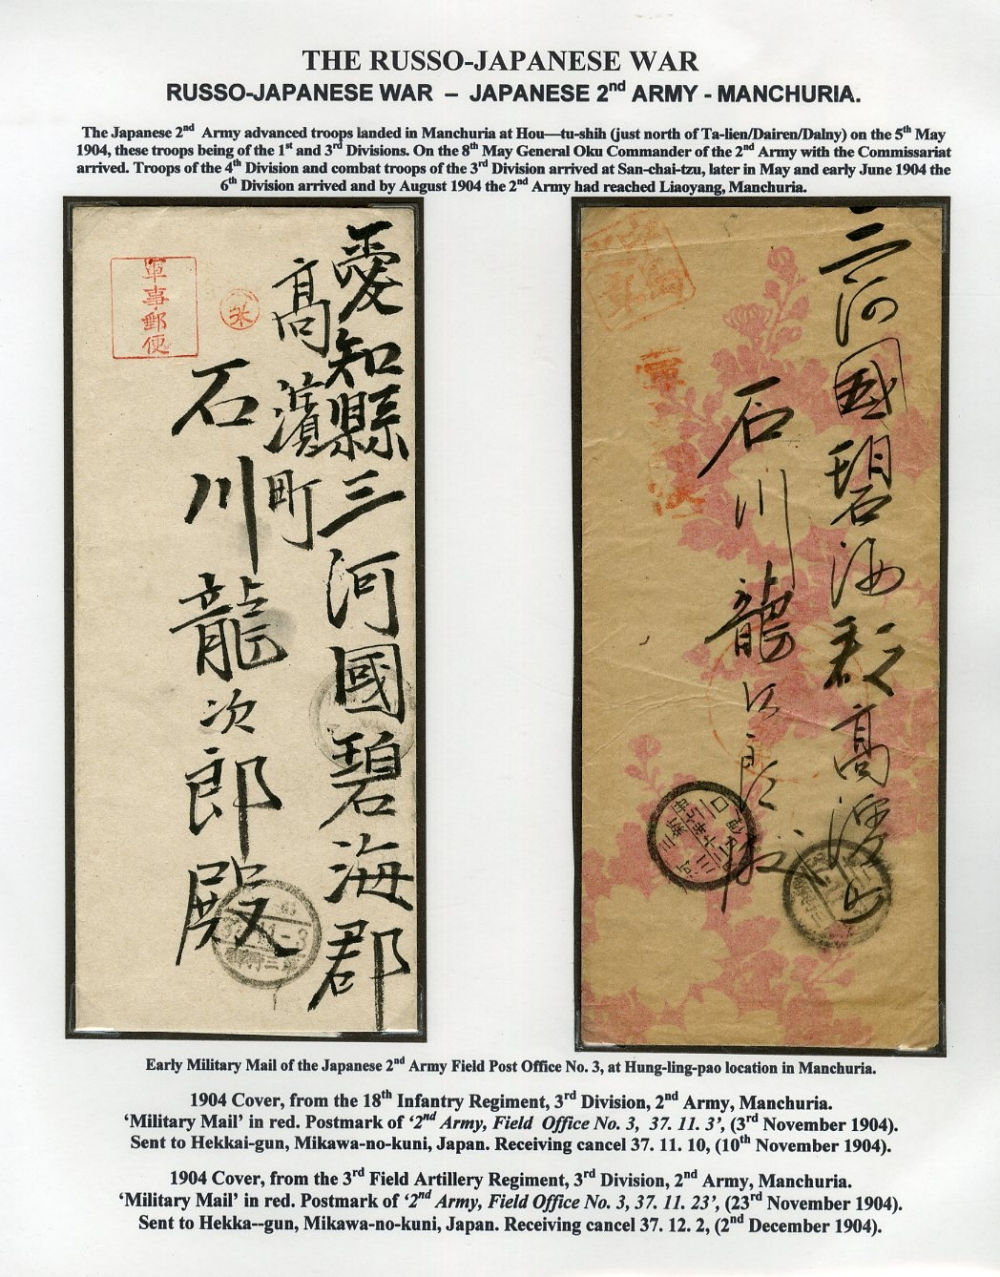 THE RUSSO-JAPANESE WAR
RUSSO-JAPANESE WAR – JAPANESE 2nd ARMY - MANCHURIA.
The Japanese 2nd Army advanced troops landed in Manchuria at Hou—tu-shih (just north of Ta-lien/Dairen/Dalny) on the 5th May
1904, these troops being of the 1st and 3rd Divisions. On the 8th May General Oku Commander of the 2nd Army with the Commissariat
arrived. Troops of the 4th Division and combat troops of the 3rd Division arrived at San-chai-tzu, later in May and early June 1904 the
6th Division arrived and by August 1904 the 2nd Army had reached Liaoyang, Manchuria.
愛知縣三河國碧海郡
高濱町
石川龍次郎殿
軍事郵便
三河國碧海郡高濱
石川龍次郎
軍事
Early Military Mail of the Japanese 2nd Army Field Post Office No. 3, at Hung-ling-pao location in Manchuria.
1904 Cover, from the 18th Infantry Regiment, 3rd Division, 2nd Army, Manchuria.
‘Military Mail’ in red. Postmark of ‘2nd Army, Field Office No. 3, 37. 11. 3’, (3rd November 1904).
Sent to Hekkai-gun, Mikawa-no-kuni, Japan. Receiving cancel 37. 11. 10, (10th November 1904).
1904 Cover, from the 3rd Field Artillery Regiment, 3rd Division, 2nd Army, Manchuria.
‘Military Mail’ in red. Postmark of ‘2nd Army, Field Office No. 3, 37. 11. 23’, (23rd November 1904).
Sent to Hekka--gun, Mikawa-no-kuni, Japan. Receiving cancel 37. 12. 2, (2nd December 1904).